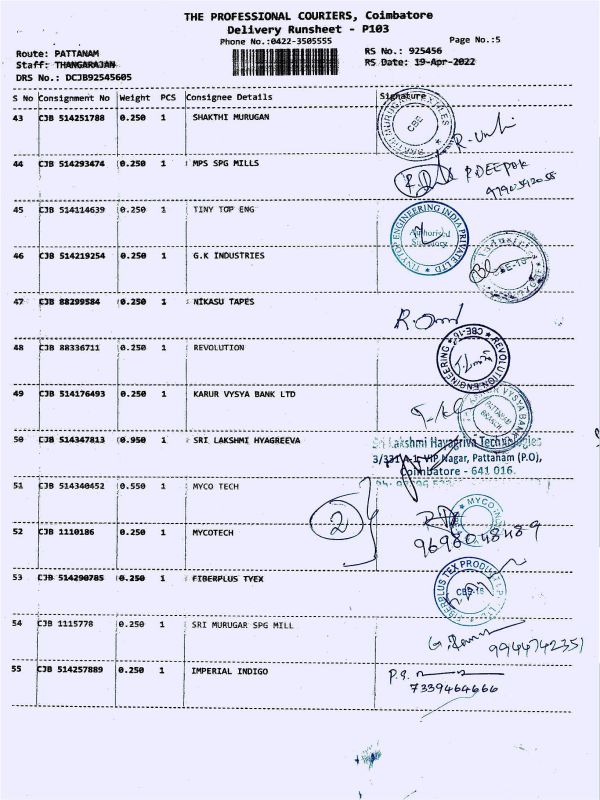 THE PROFESSIONAL COURIERS, Coimbatore
Delivery Runsheet - P103
Phone No.:0422-3505555
Page No.:5
Route: PATTANAM
RS No.: 925456
Staff: THANGARAJAN
RS Date: 19-Apr-2022
DRS No.: DCJB92545605
S No Consignment No Weight PCS Consignee Details Signature
43 CJB 514251788 0.250 1 SHAKTHI MURUGAN
CBE
44 CJB 514293474 0.250 1 MPS SPG MILLS
P.DEEPAK
45 CJB 514114639 0.250 1 TINY TOP ENG
TINYTOP ENGINEERING INDIA PRIVATE LTD
Authorised
Signatory
46 CJB 514219254 0.250 1 G.K INDUSTRIES
CBE-16
47 CJB 88299584 0.250 1 NIKASU TAPES
48 CJB 88336711 0.250 1 REVOLUTION
REVOLUTION ENGINEERING CBE-16
49 CJB 514176493 0.250 1 KARUR VYSYA BANK LTD
VYSYA BANK
PATTANAM
BRANCH
50 CJB 514347813 0.950 1 SRI LAKSHMI HYAGREEVA
Sri Lakshmi Hayagriva Technologies
VIP Nagar, Pattanam (P.O),
Coimbatore - 641 016.
51 CJB 514340452 0.550 1 MYCO TECH
2
MYCO
52 CJB 1110186 0.250 1 MYCOTECH
9698048489
53 CJB 514290785 0.250 1 FIBERPLUS TYEX
FIBERPLUS TEX PRODUCT
CBE-16
54 CJB 1115778 0.250 1 SRI MURUGAR SPG MILL
9944742351
55 CJB 514257889 0.250 1 IMPERIAL INDIGO
7339464666